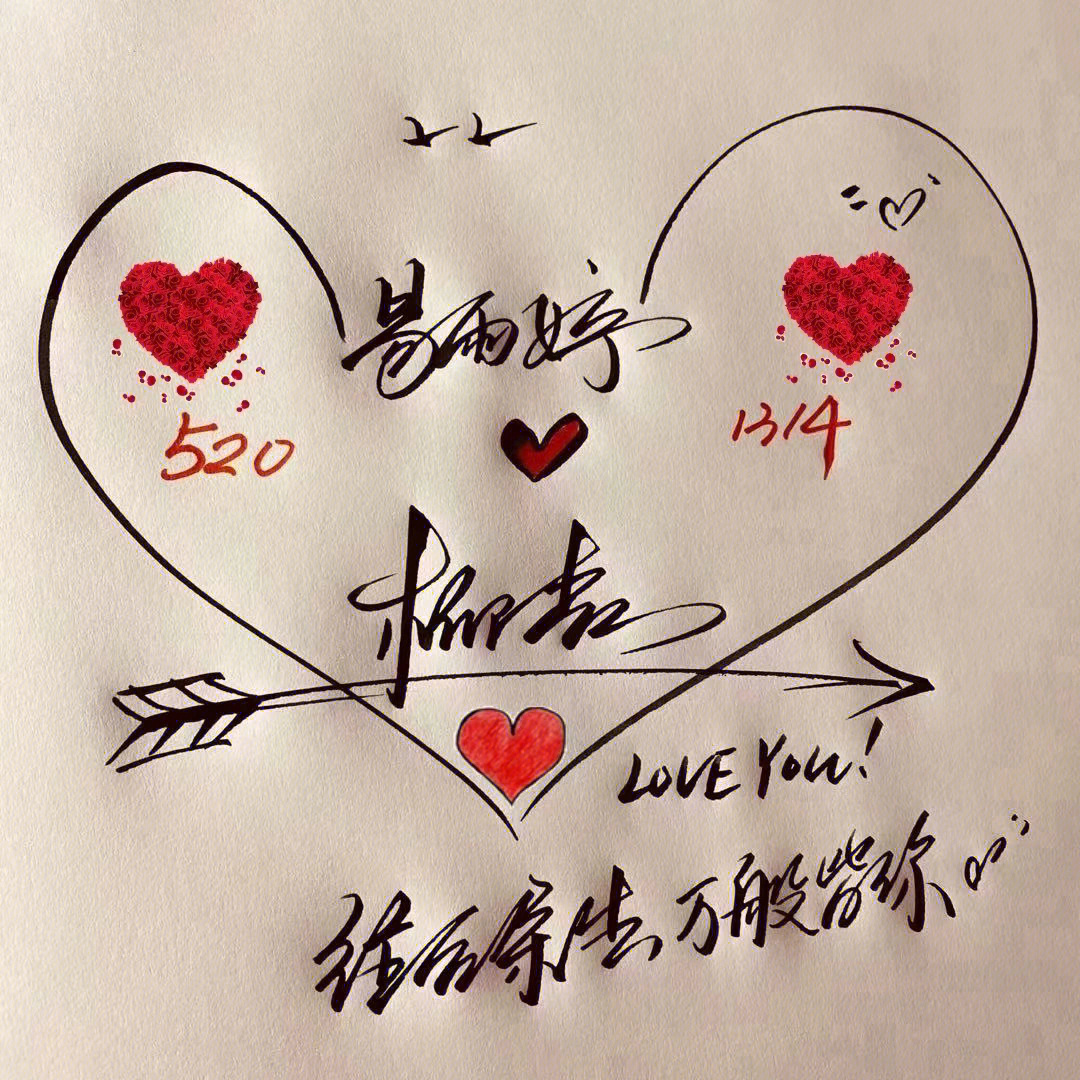 易雨婷
520
1314
柳杰
LOVE YOU!
往后余生万般皆你